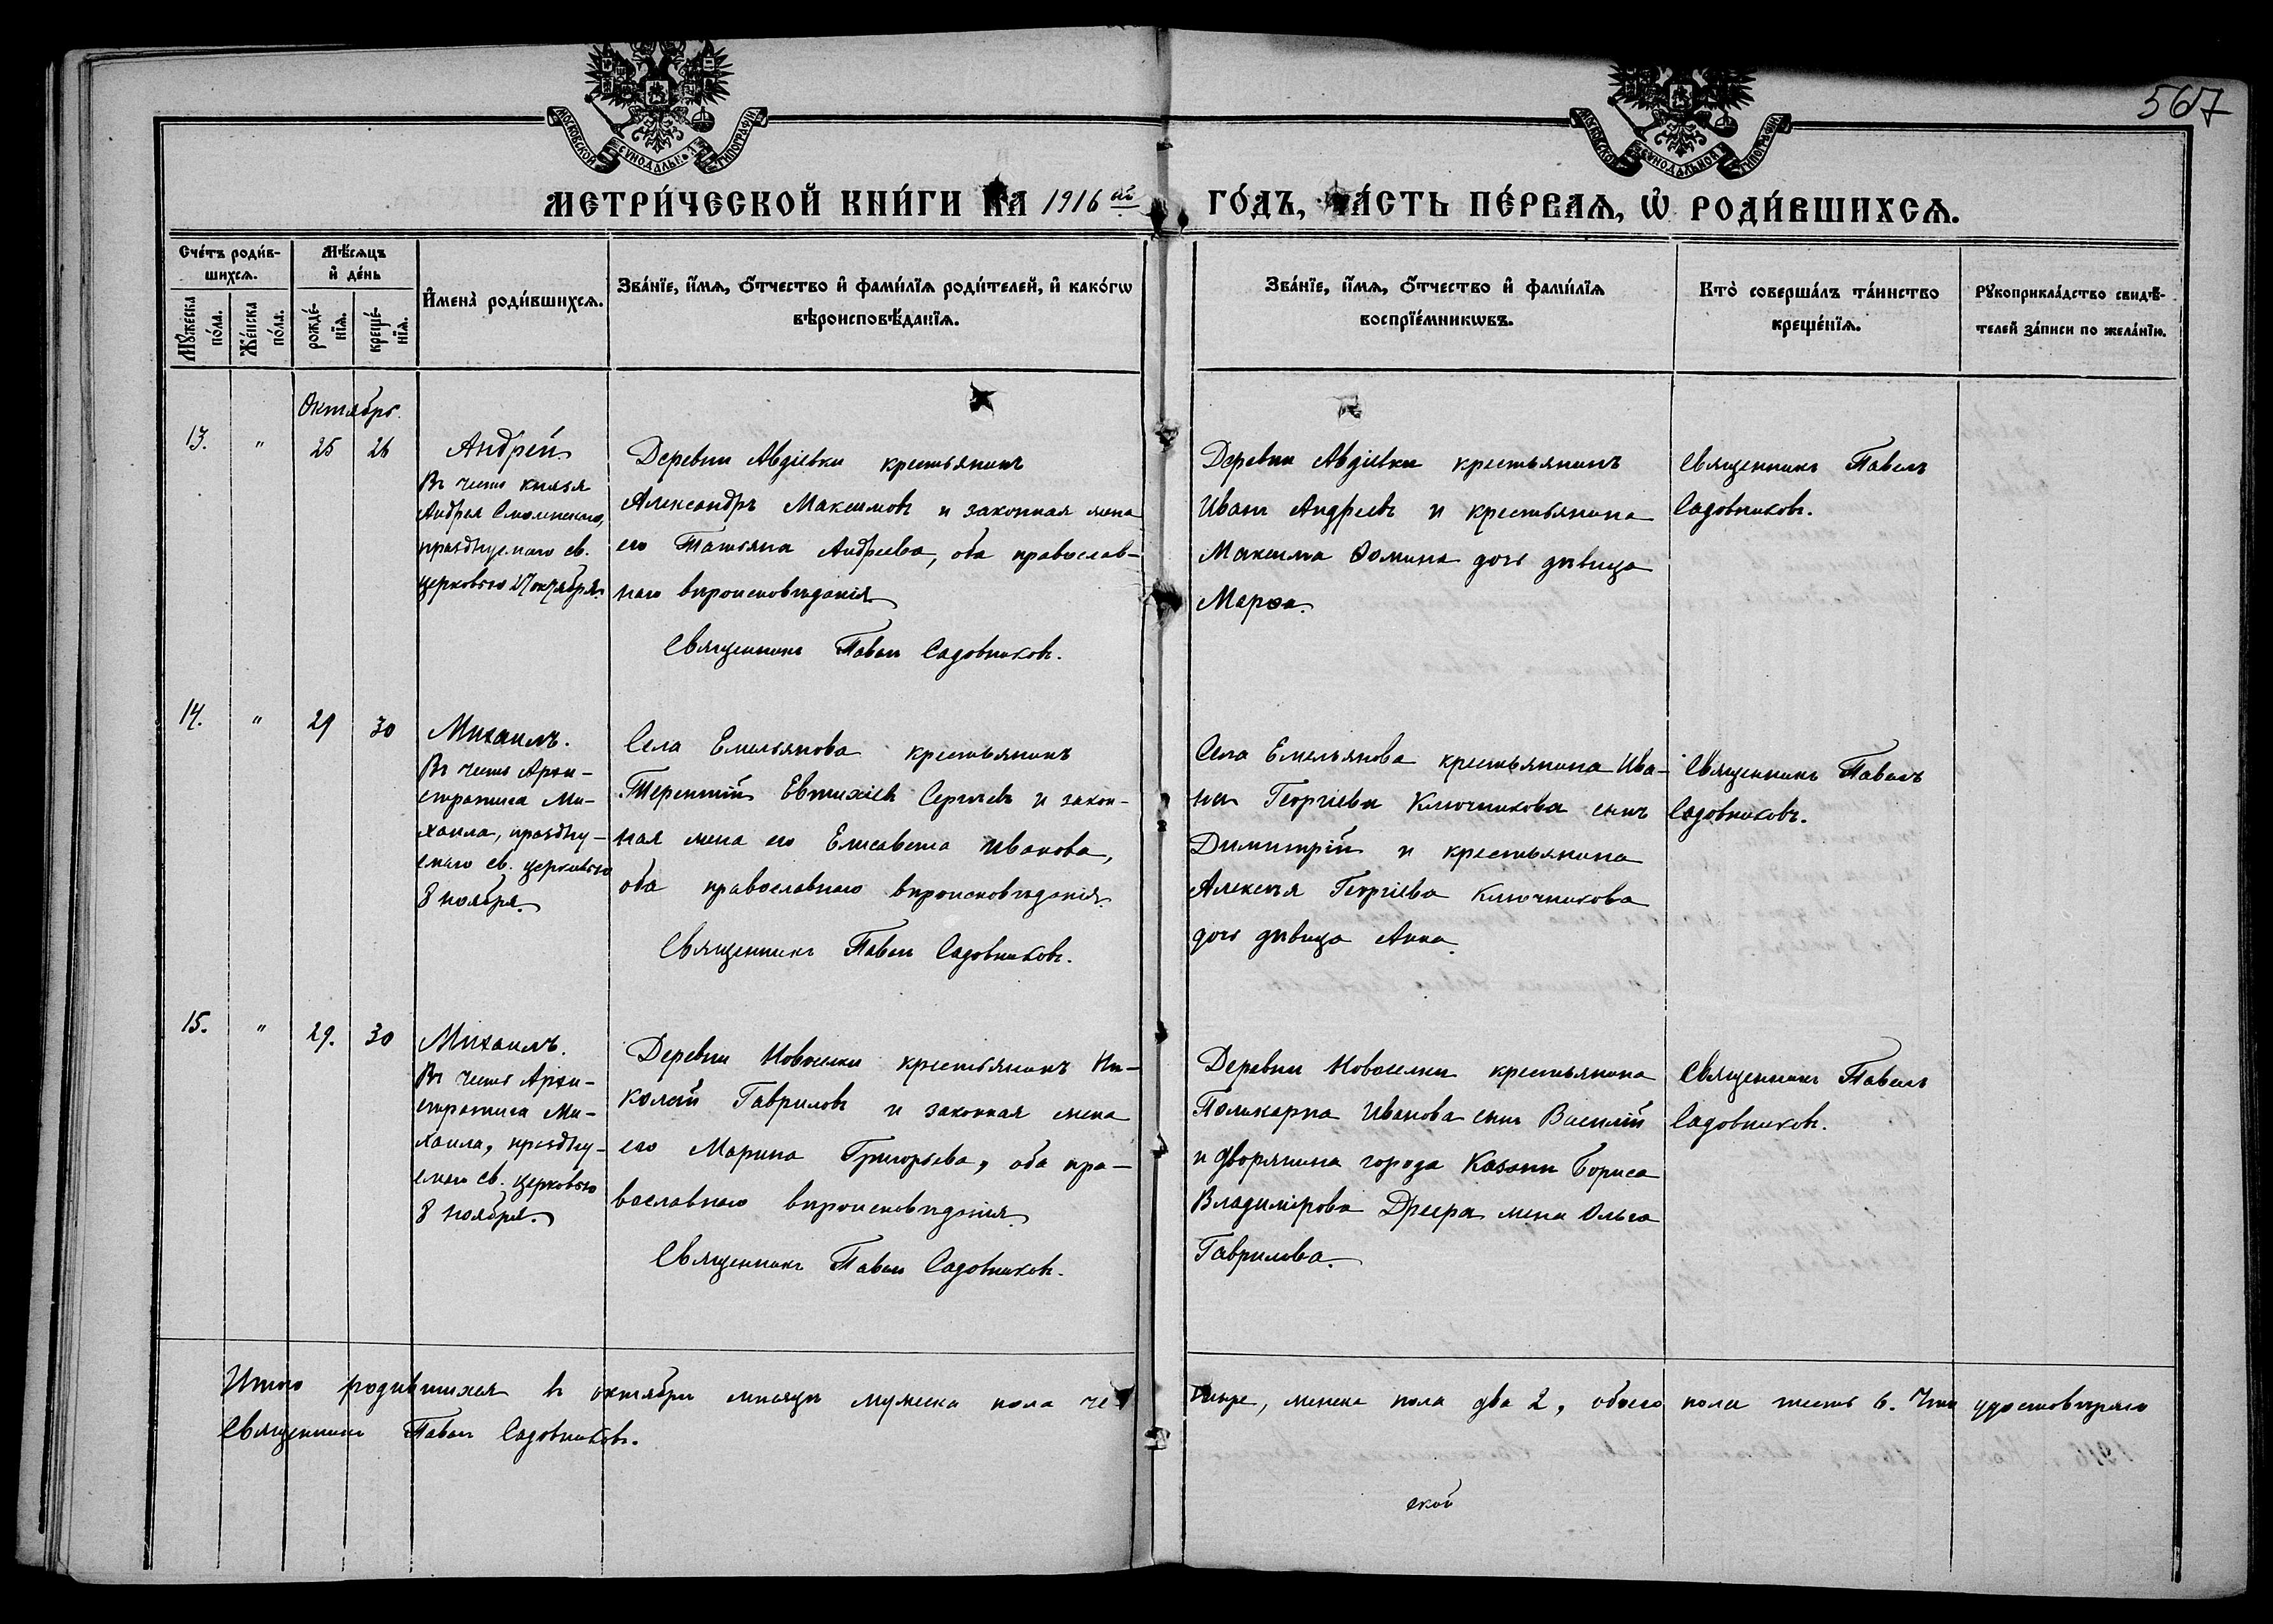 567
МОСКОВСКОЙ СУНОДАЛЬНОЙ ТИПОГРАФІИ
МОСКОВСКОЙ СУНОДАЛЬНОЙ ТИПОГРАФІИ
МЕТРИ́ЧЕСКОЙ КНИ́ГИ НА 1916 ый ГО́ДЪ, ЧА́СТЬ ПЕ́РВАѦ, Ѡ҆ РОДИ́ВШИХСѦ.
Сче́тъ роди́в-
шихсѧ.
Мꙋ́жеска
по́ла.
Же́нска
по́ла.
Мѣ́сѧцъ
и҆ де́нь
рожде́-
нїѧ.
креще́-
нїѧ.
И҆мена̀ роди́вшихсѧ.
Зва́нїе, и҆́мѧ, ѻ҆́тчество и҆ фами́лїѧ роди́телей, и҆ како́гѡ
вѣроисповѣ́данїѧ.
Зва́нїе, и҆́мѧ, ѻ҆́тчество и҆ фами́лїѧ
воспрїе́мникѡвъ.
Кто̀ соверша́лъ та́инство
креще́нїѧ.
Рꙋкоприкла́дство свидѣ́-
телей за́писи по жела́нїю.
Октябрь.
13.
"
25
26
Андрей
Въ честь князя
Андрея Смоленскаго,
празднуемаго св.
церковью 27 октября.
Деревни Авдіевки крестьянинъ
Александръ Максимовъ и законная жена
его Татьяна Андреева, оба православ-
наго вѣроисповѣданія.
Священникъ Павелъ Садовниковъ.
Деревни Авдіевки крестьянинъ
Иванъ Андреевъ и крестьянина
Максима Ѳомина дочь дѣвица
Марѳа.
Священникъ Павелъ
Садовниковъ.
14.
"
29
30
Михаилъ.
Въ честь Архи-
стратига Ми-
хаила, праздну-
емаго св. церковью
8 ноября.
Села Емельянова крестьянинъ
Терентій Евтихіевъ Сергѣевъ и закон-
ная жена его Елисавета Иванова,
оба православнаго вѣроисповѣданія.
Священникъ Павелъ Садовниковъ.
Села Емельянова крестьянина Ива-
на Георгіева Ключникова сынъ
Димитрій и крестьянина
Алексѣя Георгіева Ключникова
дочь дѣвица Анна.
Священникъ Павелъ
Садовниковъ.
15.
"
29.
30
Михаилъ.
Въ честь Архи-
стратига Ми-
хаила, праздну-
емаго св. церковью
8 ноября.
Деревни Новоселки крестьянинъ Ни-
колай Гавриловъ и законная жена
его Марина Григорьева, оба пра-
вославнаго вѣроисповѣданія.
Священникъ Павелъ Садовниковъ.
Деревни Новоселки крестьянина
Поликарпа Иванова сынъ Василій
и дворянина города Казани Бориса
Владимірова Дреера жена Ольга
Гаврилова.
Священникъ Павелъ
Садовниковъ.
Итого родившихся въ октябрѣ мѣсяцѣ мужеска пола че-
тыре, женска пола два 2, обоего пола шесть 6. Что удостовѣряю
Священникъ Павелъ Садовниковъ.
ской